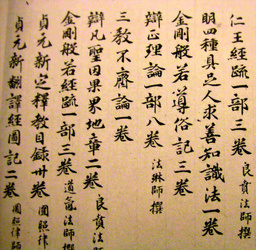 仁王經疏一部三卷 良賁法師撰
明四種具足人求善知識法一卷
金剛般若導俗記三卷
辯正理論一部八卷 法琳師撰
三教不齊論一卷
辯凡聖因果界地章二卷 良賁法師
金剛般若經疏一部三卷 道氤法師撰
貞元新定釋教目錄卅卷 圓照律師
貞元新翻譯經圖記二卷 圓照律師